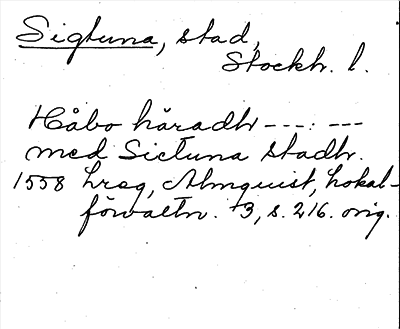 Sigtuna, stad,
Stockh. l.
Håbo häradh ---:---
med Sictuna stadh.
1558 Lreg, Almquist, Lokal-
förvaltn. 3, s. 216. orig.